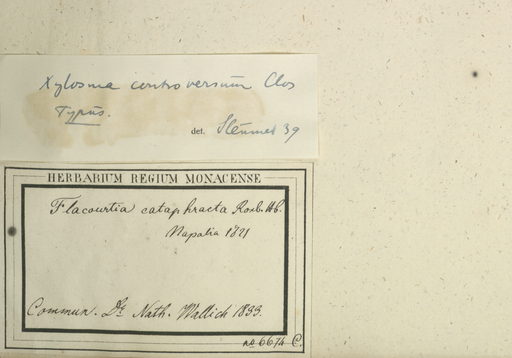 Xylosma controversum Clos
Typus.
det. Sleumer 39
HERBARIUM REGIUM MONACENSE
Flacourtia cataphracta Roxb. Hb.
Napalia 1821
Commun. Dr. Nath. Wallich 1833.
no 6674 C.